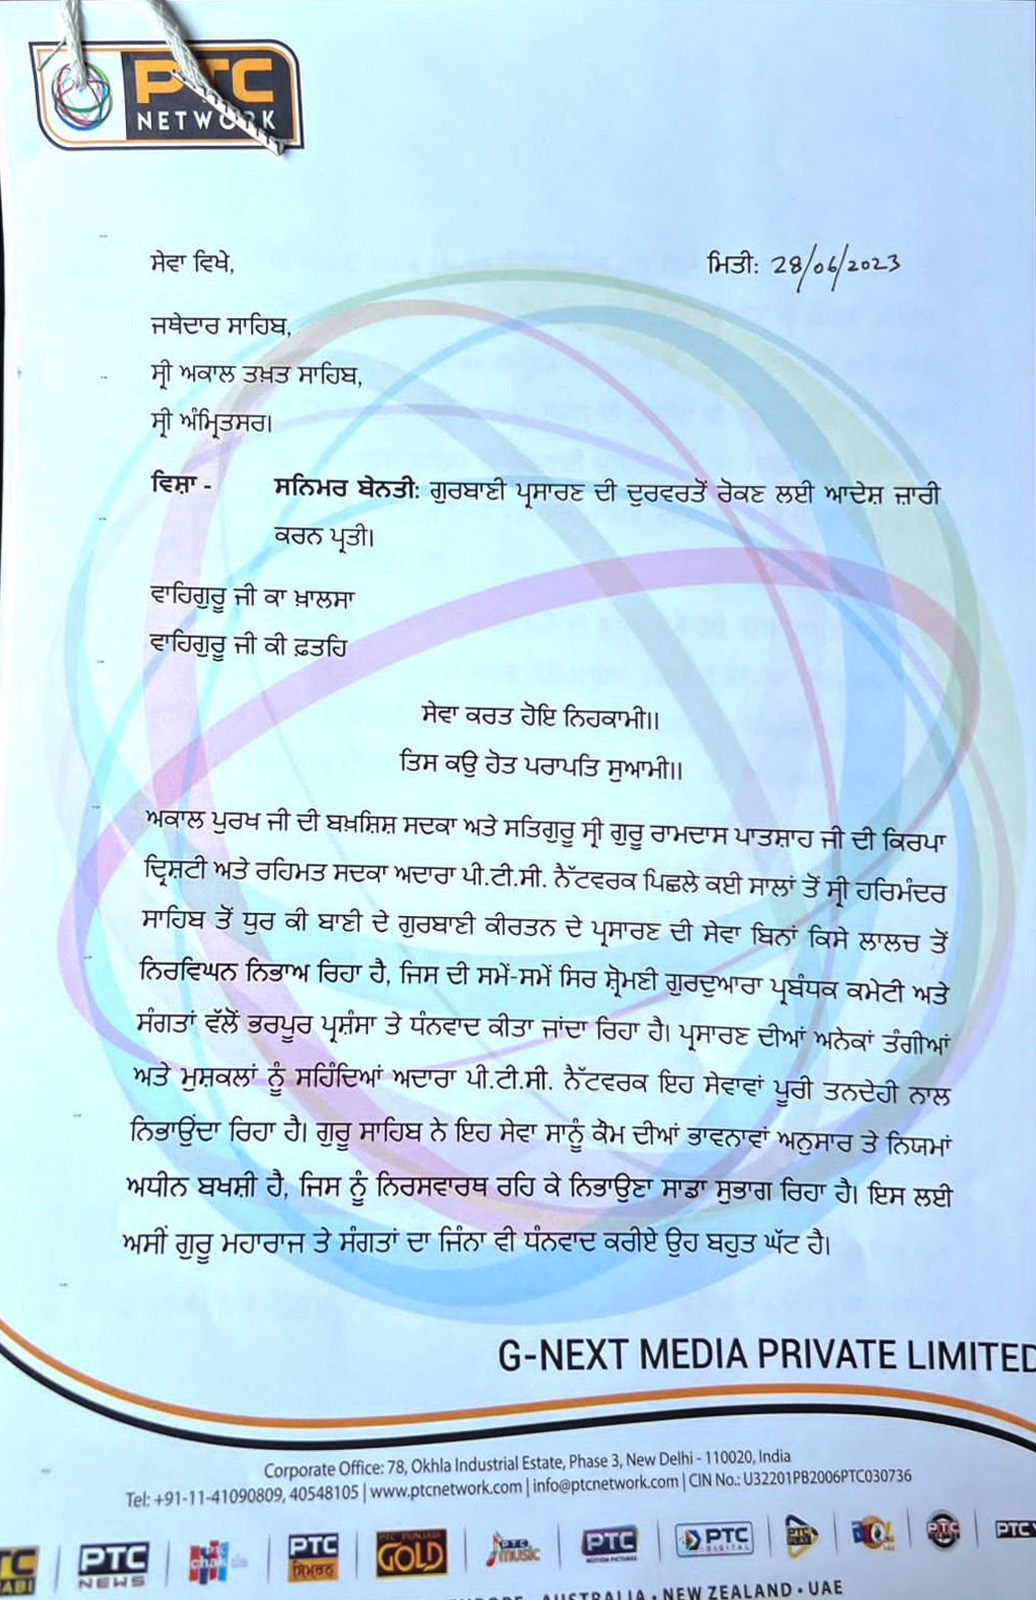 PTC
NETWORK
ਸੇਵਾ ਵਿਖੇ,
ਮਿਤੀ: 28/06/2023
ਜਥੇਦਾਰ ਸਾਹਿਬ,
ਸ੍ਰੀ ਅਕਾਲ ਤਖ਼ਤ ਸਾਹਿਬ,
ਸ੍ਰੀ ਅੰਮ੍ਰਿਤਸਰ।
ਵਿਸ਼ਾ - ਸਨਿਮਰ ਬੇਨਤੀ: ਗੁਰਬਾਣੀ ਪ੍ਰਸਾਰਣ ਦੀ ਦੁਰਵਰਤੋਂ ਰੋਕਣ ਲਈ ਆਦੇਸ਼ ਜ਼ਾਰੀ
ਕਰਨ ਪ੍ਰਤੀ।
ਵਾਹਿਗੁਰੂ ਜੀ ਕਾ ਖ਼ਾਲਸਾ
ਵਾਹਿਗੁਰੂ ਜੀ ਕੀ ਫ਼ਤਹਿ
ਸੇਵਾ ਕਰਤ ਹੋਇ ਨਿਹਕਾਮੀ॥
ਤਿਸ ਕਉ ਹੋਤ ਪਰਾਪਤਿ ਸੁਆਮੀ॥
ਅਕਾਲ ਪੁਰਖ ਜੀ ਦੀ ਬਖ਼ਸ਼ਿਸ਼ ਸਦਕਾ ਅਤੇ ਸਤਿਗੁਰੂ ਸ੍ਰੀ ਗੁਰੂ ਰਾਮਦਾਸ ਪਾਤਸ਼ਾਹ ਜੀ ਦੀ ਕਿਰਪਾ
ਦ੍ਰਿਸ਼ਟੀ ਅਤੇ ਰਹਿਮਤ ਸਦਕਾ ਅਦਾਰਾ ਪੀ.ਟੀ.ਸੀ. ਨੈੱਟਵਰਕ ਪਿਛਲੇ ਕਈ ਸਾਲਾਂ ਤੋਂ ਸ੍ਰੀ ਹਰਿਮੰਦਰ
ਸਾਹਿਬ ਤੋਂ ਧੁਰ ਕੀ ਬਾਣੀ ਦੇ ਗੁਰਬਾਣੀ ਕੀਰਤਨ ਦੇ ਪ੍ਰਸਾਰਣ ਦੀ ਸੇਵਾ ਬਿਨਾਂ ਕਿਸੇ ਲਾਲਚ ਤੋਂ
ਨਿਰਵਿਘਨ ਨਿਭਾਅ ਰਿਹਾ ਹੈ, ਜਿਸ ਦੀ ਸਮੇਂ-ਸਮੇਂ ਸਿਰ ਸ਼੍ਰੋਮਣੀ ਗੁਰਦੁਆਰਾ ਪ੍ਰਬੰਧਕ ਕਮੇਟੀ ਅਤੇ
ਸੰਗਤਾਂ ਵੱਲੋਂ ਭਰਪੂਰ ਪ੍ਰਸ਼ੰਸਾ ਤੇ ਧੰਨਵਾਦ ਕੀਤਾ ਜਾਂਦਾ ਰਿਹਾ ਹੈ। ਪ੍ਰਸਾਰਣ ਦੀਆਂ ਅਨੇਕਾਂ ਤੰਗੀਆਂ
ਅਤੇ ਮੁਸ਼ਕਲਾਂ ਨੂੰ ਸਹਿੰਦਿਆਂ ਅਦਾਰਾ ਪੀ.ਟੀ.ਸੀ. ਨੈੱਟਵਰਕ ਇਹ ਸੇਵਾਵਾਂ ਪੂਰੀ ਤਨਦੇਹੀ ਨਾਲ
ਨਿਭਾਉਂਦਾ ਰਿਹਾ ਹੈ। ਗੁਰੂ ਸਾਹਿਬ ਨੇ ਇਹ ਸੇਵਾ ਸਾਨੂੰ ਕੌਮ ਦੀਆਂ ਭਾਵਨਾਵਾਂ ਅਨੁਸਾਰ ਤੇ ਨਿਯਮਾਂ
ਅਧੀਨ ਬਖਸ਼ੀ ਹੈ, ਜਿਸ ਨੂੰ ਨਿਰਸਵਾਰਥ ਰਹਿ ਕੇ ਨਿਭਾਉਣਾ ਸਾਡਾ ਸੁਭਾਗ ਰਿਹਾ ਹੈ। ਇਸ ਲਈ
ਅਸੀਂ ਗੁਰੂ ਮਹਾਰਾਜ ਤੇ ਸੰਗਤਾਂ ਦਾ ਜਿੰਨਾ ਵੀ ਧੰਨਵਾਦ ਕਰੀਏ ਉਹ ਬਹੁਤ ਘੱਟ ਹੈ।
G-NEXT MEDIA PRIVATE LIMITED
Corporate Office: 78, Okhla Industrial Estate, Phase 3, New Delhi - 110020, India
Tel: +91-11-41090809, 40548105 | www.ptcnetwork.com | info@ptcnetwork.com | CIN No.: U32201PB2006PTC030736
PTC NEWS
chak de
PTC ਸਿਮਰਨ
PTC PUNJABI GOLD
PTC music
PTC MOTION PICTURES
PTC DIGITAL
PTC PLAY
PTC
AUSTRALIA • NEW ZEALAND • UAE